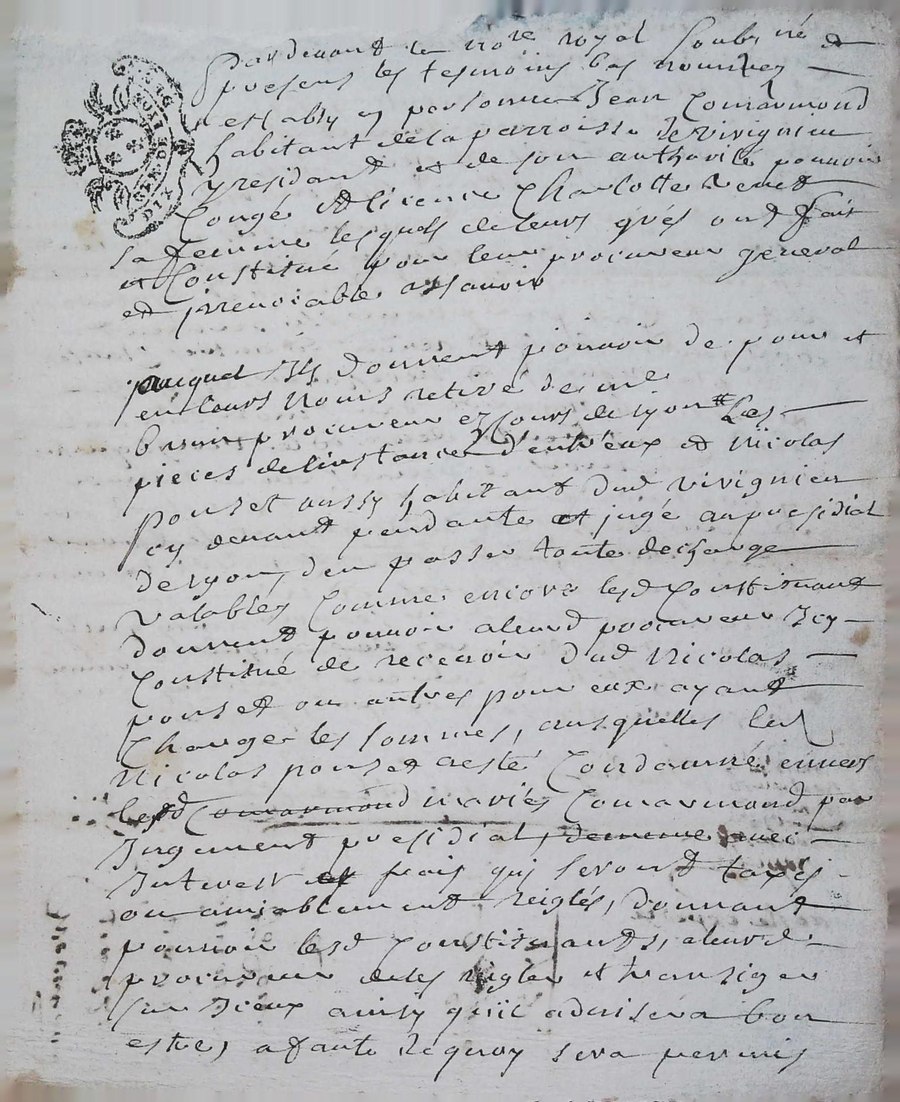 Pardevant le no.re royal soubs.né et
presens les tesmoins bas nommes
estably en personne Jean Comarmond
habitant de la parroisse de Vivignieu
y residant et de son authorité pouvoir
Congé et licence Charlotte
sa femme lesquels de leurs grés ont fait
et Constitué pour leur procureur general
et jrrevocable assavoir
DIX
auquel Ils donnent pouvoir de pour et
en leurs noms retiré de me
Brun procureur ez Cours de Lyon Les
pieces de l'instance d'entr'eux et Nicolas
Ponset aussy habitant dud Vivignieu
cy devant pendante et jugé au presidial
de Lyon, d'en passer toute decharge
Valables, Comme encore lesd Constituant
donnent pouvoir aleurd procureur Icy
Constitué de recevoir dud Nicolas
ponset ou autres pour eux ayant
Charge les sommes, ausquelles led
Nicolas ponset a esté Condamné envers
lesd Comarmond mariés Comarmond par
Jugement presidial, de mesme avec
Interest et frais qui seront taxés
ou amiablement reiglés, donnant
pouvoir lesd Constituants, aleurd
procureur de les regler et transiger
sur Iceux ainsy qu'il advisera bon
estre, a faute dequoy sera permis